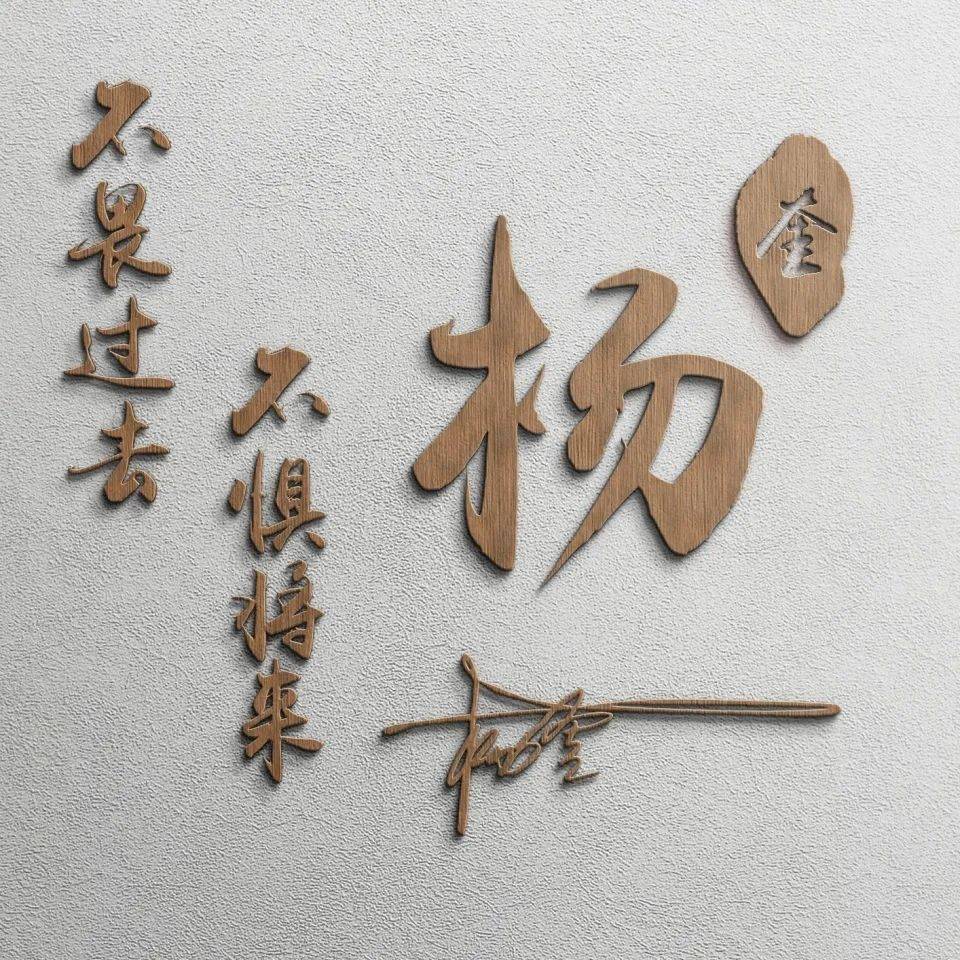 不畏过去
不惧将来
杨
奎
杨奎